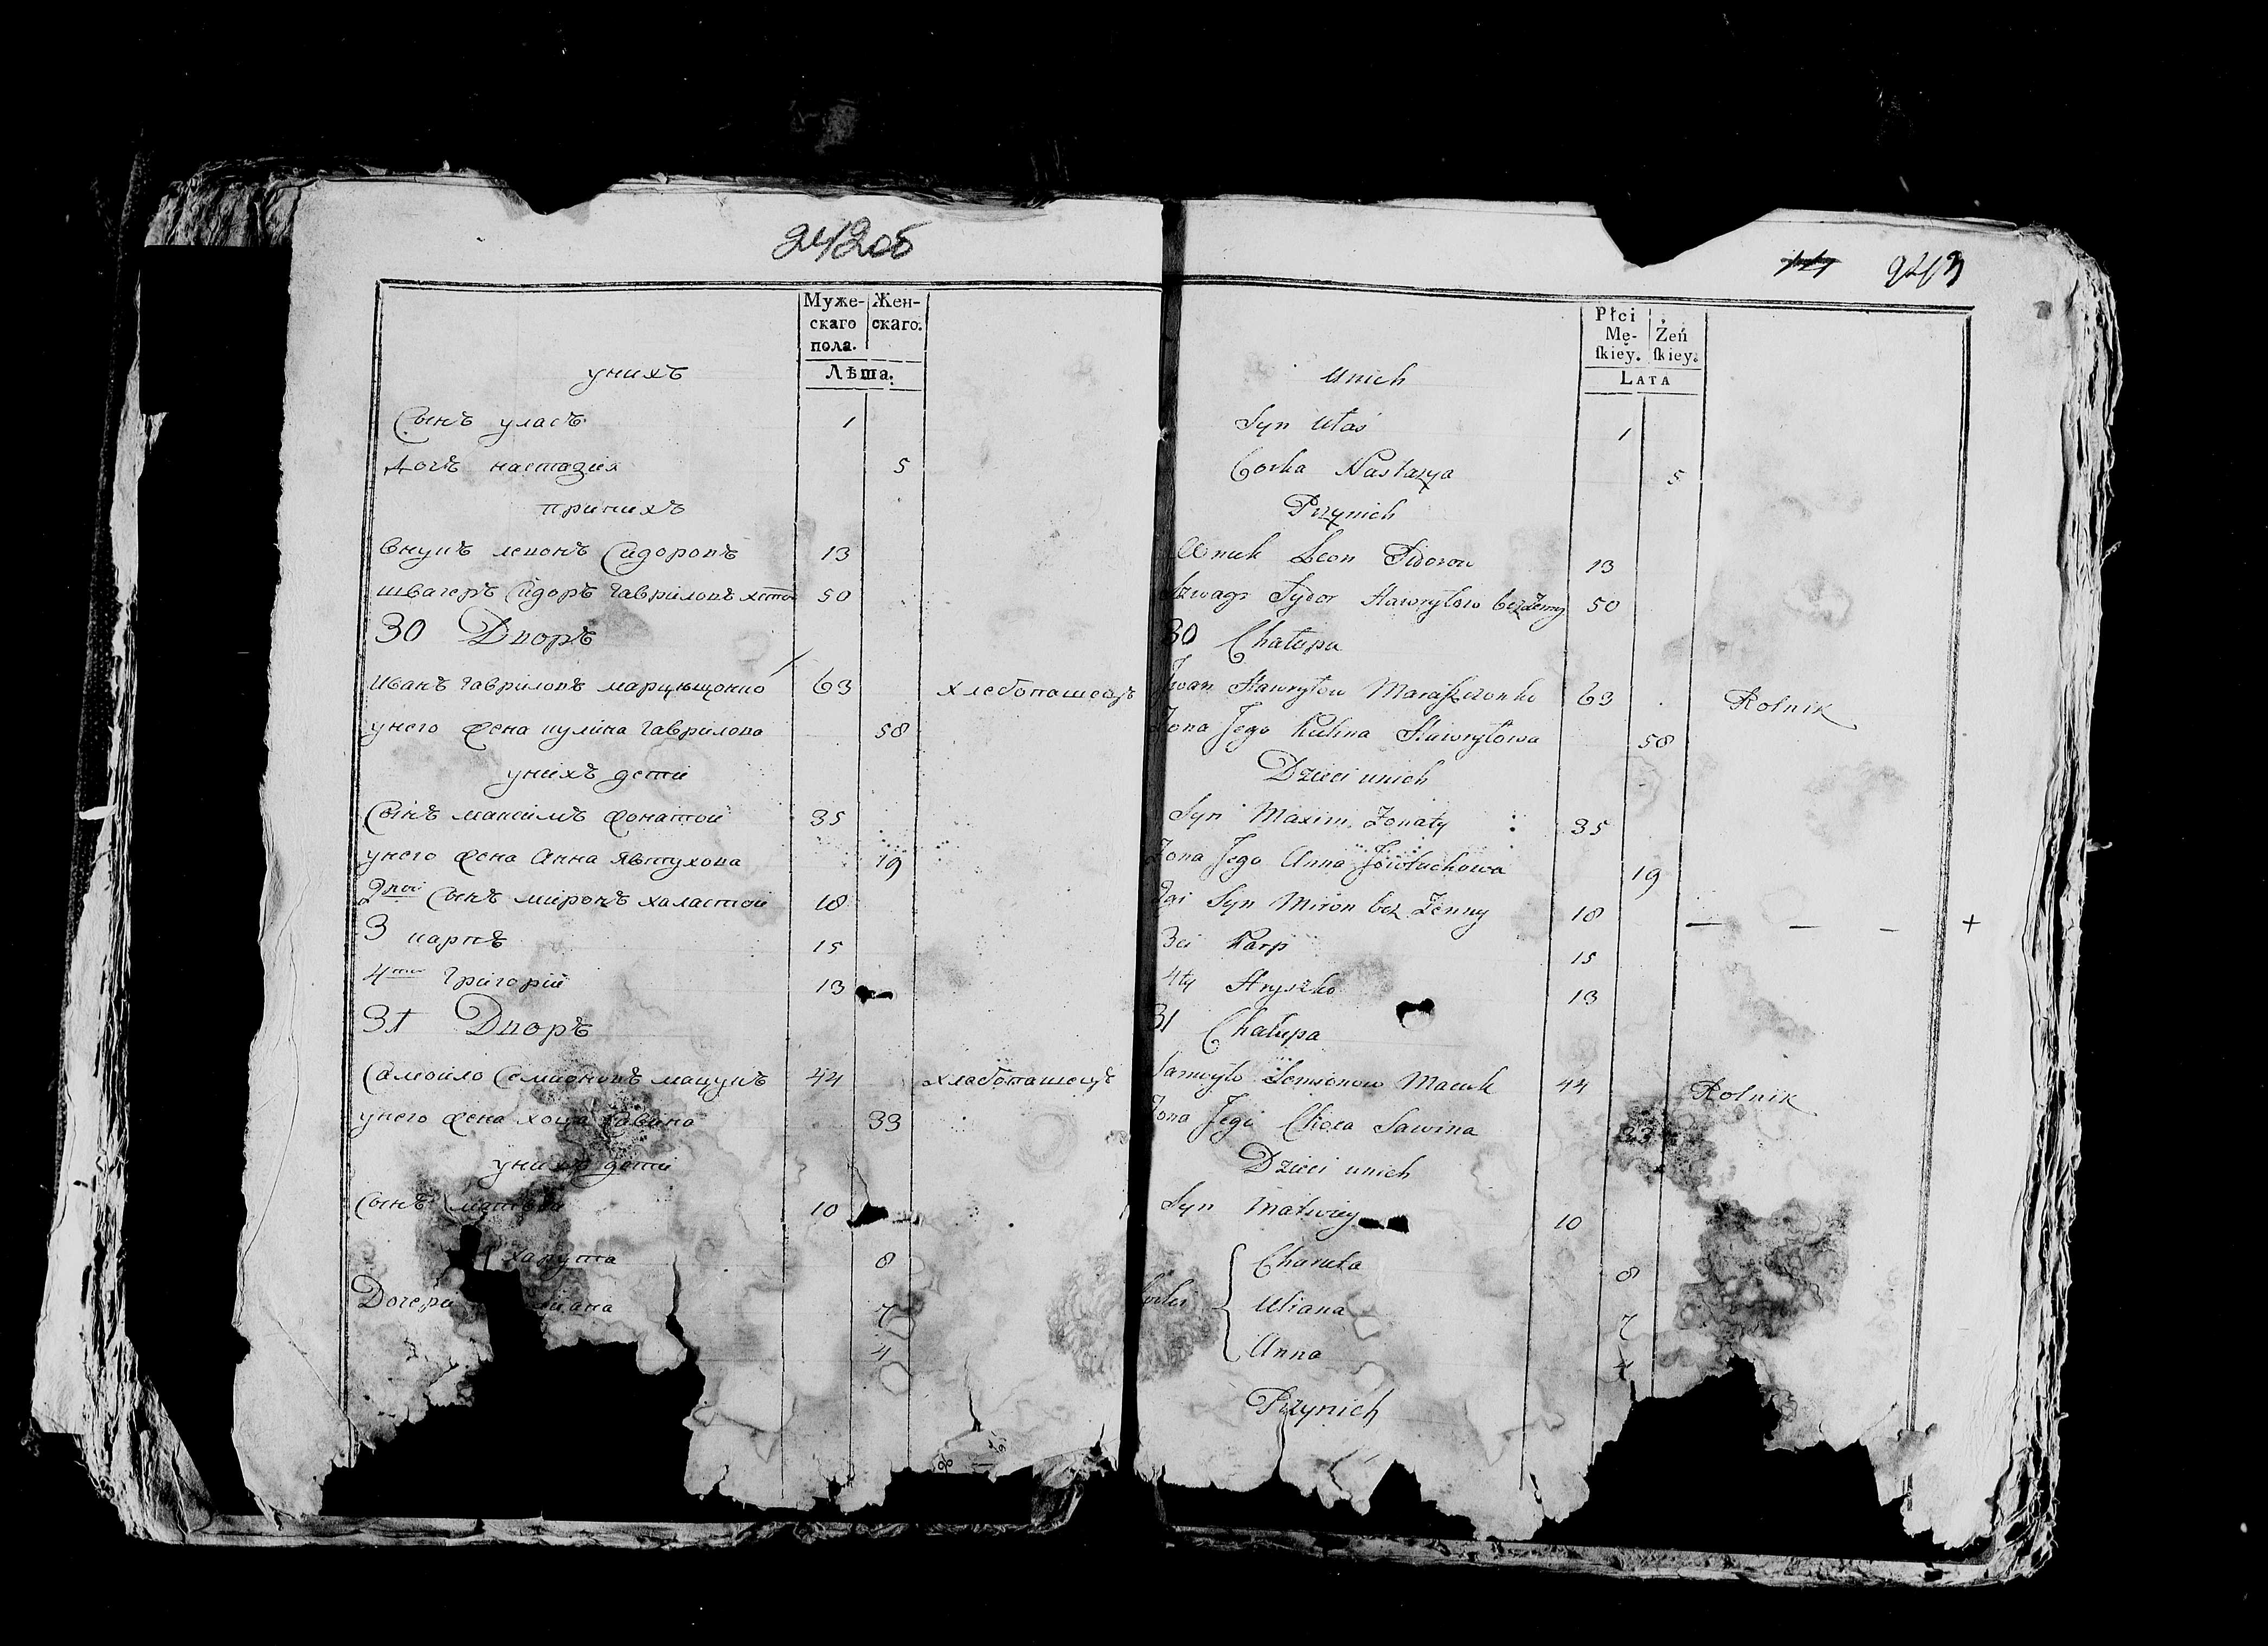 242об
Муже-скаго пола. Жен-скаго.
Лѣта:
унихъ
Сынъ уласъ 1
дочъ настазия 5
принихъ
внукъ леконъ Сидоровъ 13
швагеръ Сидоръ Гавриловъ 50
30 Дворъ
Иванъ Гаврилокъ марцющонко 63 хлебопашецъ
унего жена кулина Гаврилова 58
унихъ дети
Сынъ максимъ жонатой 35
унего жена Анна Явтухова 19
2гой Сынъ миронъ халастой 18
3 карпъ 15
4тый Григорий 13
31 Дворъ
Самойло Семионовъ мацукъ 44 хлебопашецъ
унего жена хоца Савина 33
унихъ дети
Сынъ 10
8
Дочери 7
4
243
Płci Mę-ſkiey. Żeń ſkiey.
LATA
unich
Syn Ułaś 1
Corka Nastazya 5
Przynich
Wnuk Leon Sidorow 13
Szwagr Sydor Hawryłow bezżenny 50
30 Chałupa
Iwan Hawryłow 63 Rolnik
Żona Jego Kulina Hawryłowa 58
Dzieci unich
Syn Maxim Żonaty 35
Żona Jego Anna Jowtuchowa 19
2gi Syn Miron bez Żenny 18 — — — +
3ci Karp 15
4ty Hryszko 13
31 Chałupa
Samuyło Semionow Macuk 44 Rolnik
Żona Jego Choca Sawina 33
Dzieci unich
Syn Matwiey 10
Charuta 8
Uliana 7
Anna 4
Przynich